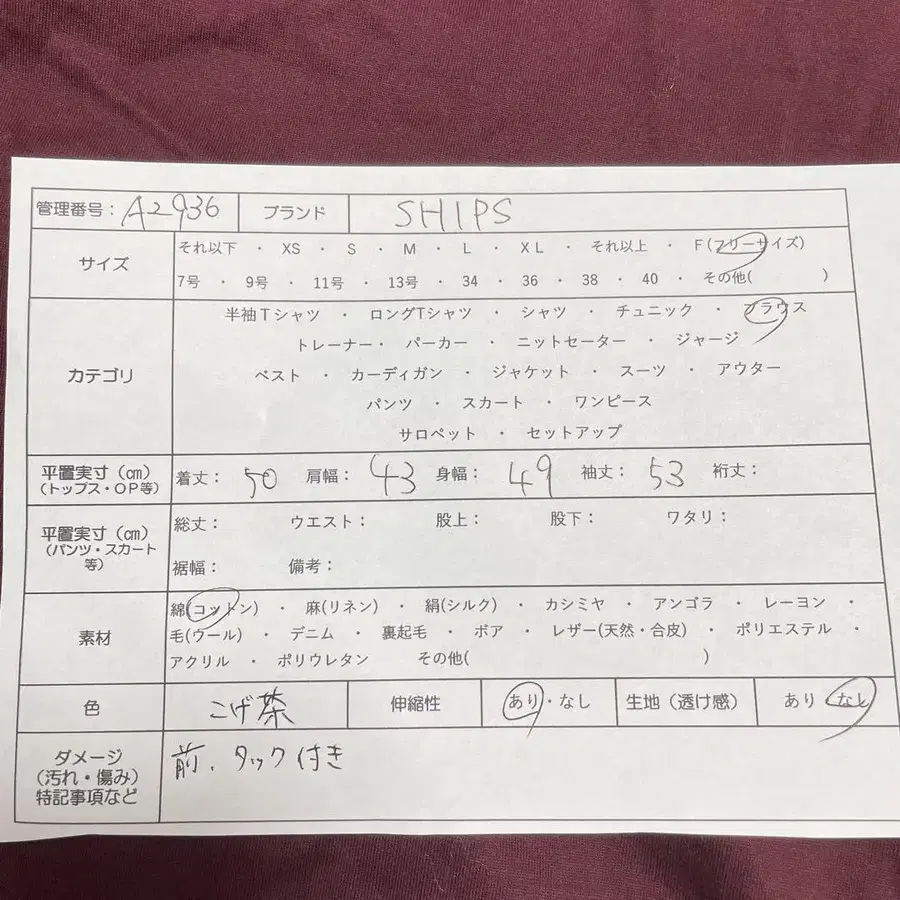 管理番号：A2936 ブランド SHIPS
サイズ
それ以下 ・ XS ・ S ・ M ・ L ・ XL ・ それ以上 ・ F(フリーサイズ)
7号 ・ 9号 ・ 11号 ・ 13号 ・ 34 ・ 36 ・ 38 ・ 40 ・ その他( )
カテゴリ
半袖Tシャツ ・ ロングTシャツ ・ シャツ ・ チュニック ・ ブラウス
トレーナー・ パーカー ・ ニットセーター ・ ジャージ
ベスト ・ カーディガン ・ ジャケット ・ スーツ ・ アウター
パンツ ・ スカート ・ ワンピース
サロペット ・ セットアップ
平置実寸（㎝）
（トップス・OP等）
着丈： 50 肩幅： 43 身幅： 49 袖丈： 53 裄丈：
平置実寸（㎝）
（パンツ・スカート
等）
総丈： ウエスト： 股上： 股下： ワタリ：
裾幅： 備考：
素材
綿(コットン) ・ 麻(リネン) ・ 絹(シルク) ・ カシミヤ ・ アンゴラ ・ レーヨン ・
毛(ウール) ・ デニム ・ 裏起毛 ・ ボア ・ レザー(天然・合皮) ・ ポリエステル ・
アクリル ・ ポリウレタン その他( )
色 こげ茶 伸縮性 あり・なし 生地（透け感） あり・なし
ダメージ
（汚れ・傷み）
特記事項など
前、タック付き